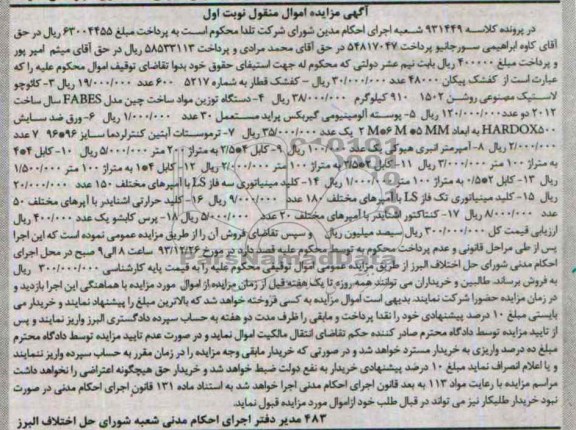 آگهی مزایده اموال منقول نوبت اول
در پرونده کلاسه ۹۳۱۴۴۹ شعبه اجرای احکام مدین شورای شرکت تلدا محکوم است به پرداخت مبلغ ۶۳۰۰۴۴۵۵ ریال در حق
آقای کاوه ابراهیمی سورجانیو پرداخت ۵۴۸۱۷۰۴۷ در حق آقای محمد مرادی و پرداخت ۵۸۵۳۳۱۱۳ ریال در حق آقای میثم امیر پور
و پرداخت مبلغ ۴۰۰۰۰۰ ریال بابت نیم عشر دولتی که محکوم له جهت استیفای حقوق خود بدوا تقاضای توقیف اموال محکوم علیه را که
عبارت است از کفشک پیکان ۴۸۰۰۰ عدد ۳۰/۰۰۰/۰۰۰ ریال - کفشک قطار به شماره ۵۲۱۷ ۶۰۰ عدد ۱۹/۰۰۰/۰۰۰ ریال ۳- کائوچو
لاستیک مصنوعی روشن ۱۵۰۲ ۹۱۰ کیلوگرم ۳۸/۰۰۰/۰۰۰ ریال ۴- دستگاه توزین مواد ساخت چین مدل FABES سال ساخت
۲۰۱۲ دو عدد ۱۲۰/۰۰۰/۰۰۰ ریال ۵- پوسته آلومینیومی گیربکس پراید مستعمل ۳۰ عدد ۱/۰۰۰/۰۰۰ ریال ۶- ورق ضد سایش
HARDOX۵۰۰ به ابعاد ۲ M*۶ M *۵ MM یک عدد ۳۵/۰۰۰/۰۰۰ ریال ۷- ترموستات آبتین کنترلردما سایز ۹۶*۹۶ ۷ عدد
۲/۰۰۰/۰۰۰ ریال ۸- آمپرمتر انبری هیوکی یک عدد ۱۰۰/۰۰۰ ریال ۹- کابل ۲/۵*۴ به متراژ ۲۰۰ متر ۵/۰۰۰/۰۰۰ ریال ۱۰- کابل ۴*۴
به متراژ ۱۰۰ متر ۳/۰۰۰/۰۰۰ ریال ۱۱- کابل ۲/۵*۳ به متراژ ۱۰۰ متر ۲/۰۰۰/۰۰۰ ریال ۱۲- کابل ۴*۱ به متراژ ۱۰۰ متر ۱/۵۰۰/۰۰۰
ریال ۱۳- کابل ۲*۰/۵ به متراژ ۱۰۰ متر ۱/۰۰۰/۰۰۰ ریال ۱۴- کلید مینیاتوری سه فاز LS با آمپرهای مختلف ۱۵۰ عدد ۲۰/۰۰۰/۰۰۰
ریال ۱۵- کلید مینیاتوری تک فاز LS با آمپرهای مختلف ۱۸۰ عدد ۹/۰۰۰/۰۰۰ ریال ۱۶- کلید حرارتی اشنایدر با آمپرهای مختلف ۵۰
عدد ۸/۰۰۰/۰۰۰ ریال ۱۷- کنتاکتور اشنایدر با آمپرهای مختلف ۲۰ عدد ۵/۰۰۰/۰۰۰ ریال ۱۸- پرس کابلشو یک عدد ۴۰۰/۰۰۰ ریال
ارزیابی قیمت کل ۳۰۰/۰۰۰/۰۰۰ ریال سیصد میلیون ریال سپس تقاضای فروش آن را از طریق مزایده عمومی نموده است که این اجرا
پس از طی مراحل قانونی و عدم پرداخت محکوم به توسط محکوم علیه قصد دارد در مورخ ۹۳/۱۲/۲۶ ساعت ۸ الی ۹ صبح در محل اجرای
احکام مدنی شورای حل اختلاف البرز از طریق مزایده عمومی اموال توقیفی محکوم علیه را به قیمت پایه کارشناسی ۳۰۰/۰۰۰/۰۰۰ ریال
به فروش برساند. طالبین و خریداران می توانند همه روزه تا یک هفته قبل از زمان مزایده از اموال مورد مزایده با هماهنگی این اجرا بازدید و
در زمان مزایده حضورا شرکت نمایند. بدیهی است اموال مزایده به کسی فروخته خواهد شد که بالاترین مبلغ را پیشنهاد نمایند و خریدار می
بایستی مبلغ ۱۰ درصد پیشنهادی خود را نقدا پرداخت و مابقی را ظرف مدت دو هفته به حساب سپرده دادگستری البرز واریز نمایند و پس
از تایید مزایده توسط دادگاه محترم صادر کننده حکم تقاضای انتقال مالکیت اموال نماید و در صورت عدم تایید مزایده توسط دادگاه محترم
مبلغ ده درصد واریزی به خریدار مسترد خواهد شد و در صورتی که خریدار مابقی وجه مزایده را در زمان مقرر به حساب سپرده واریز ننمایند
و یا اعلام انصراف نماید مبلغ ۱۰ درصد پیشنهادی خریدار به نفع دولت ضبط خواهد شد و خریدار حق هیچگونه اعتراضی را نخواهد داشت
مراسم مزایده با رعایت مواد ۱۱۳ به بعد قانون اجرای احکام مدنی اجرا خواهد شد به استناد ماده ۱۳۱ قانون اجرای احکام مدنی در صورت
نبود خریدار طلبکار نیز می تواند در قبال طلب خود از اموال مورد مزایده قبول نماید.
۴۸۳ مدیر دفتر اجرای احکام مدنی شعبه شورای حل اختلاف البرز